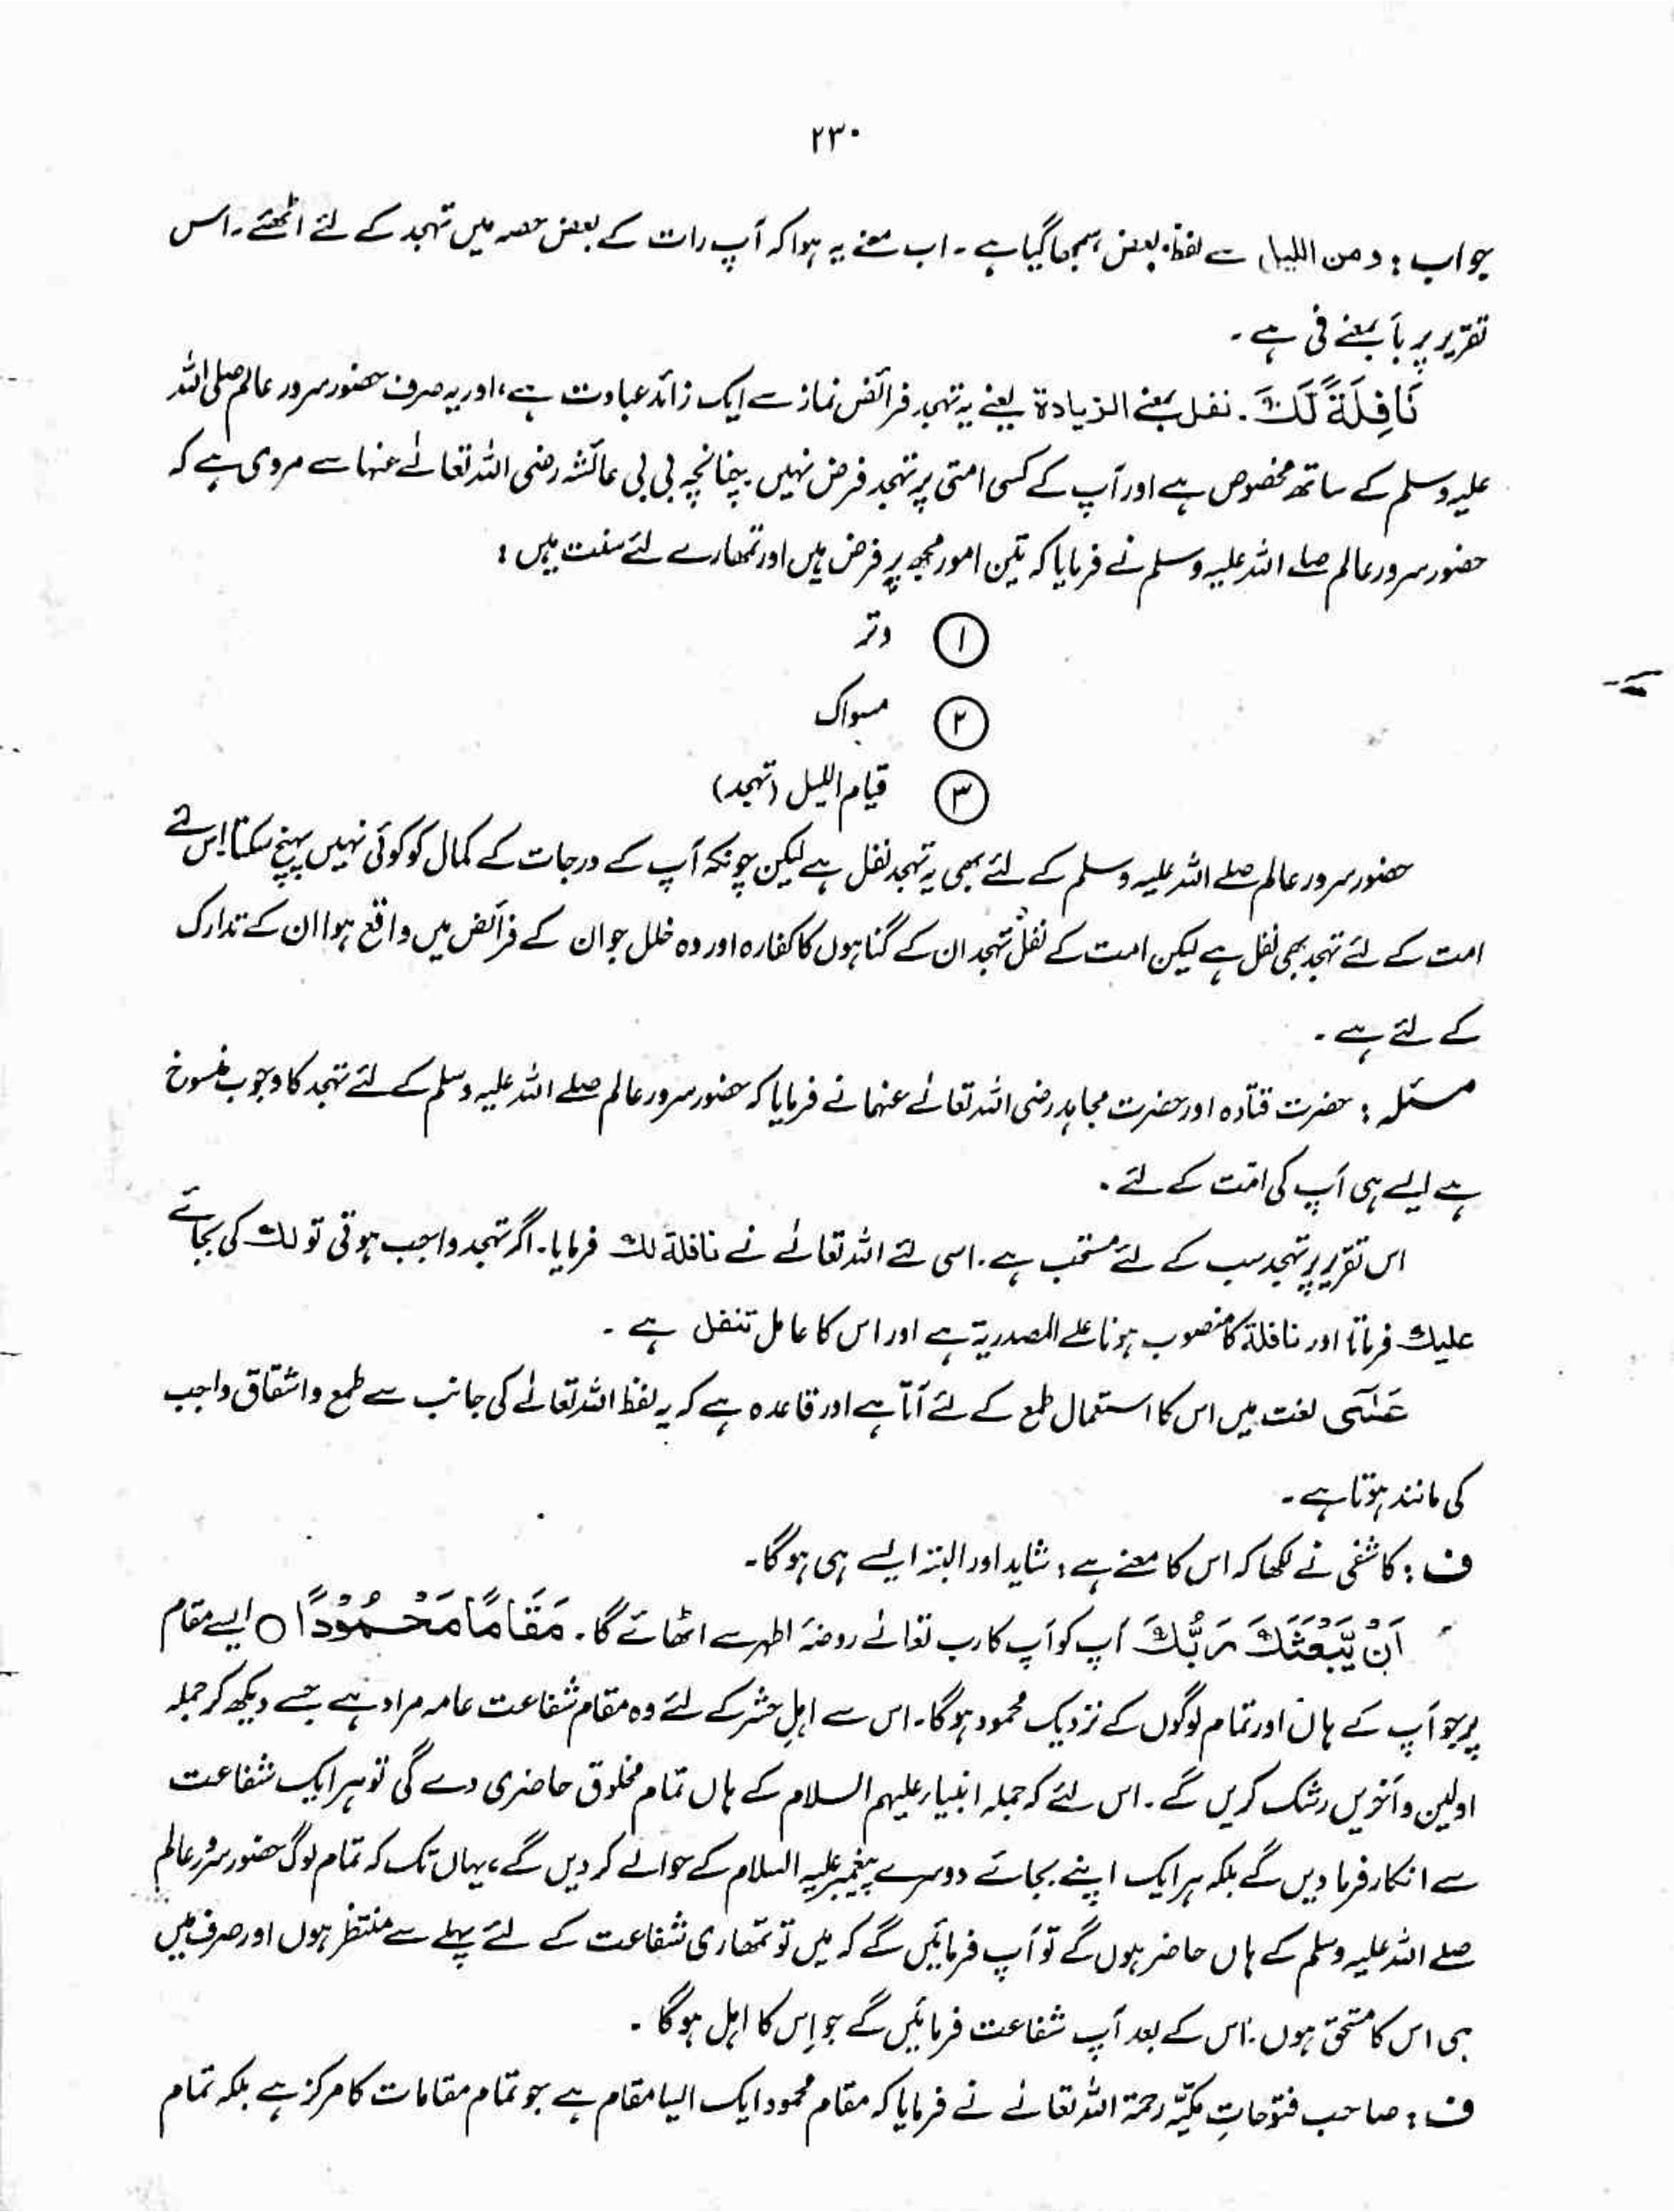 ۲۳۰
جواب : ومن الليل سے لفظ بعض سمجھا گیا ہے ۔ اب معنے یہ ہوا کہ آپ رات کے بعض حصہ میں تہجد کے لئے اٹھئے ۔ اس
تقریر پر بآ بمعنے فی ہے ۔
نَافِلَةً لَّكَ ۔ نفل بمعنے الزیادۃ یعنے یہ تہجد فرائض نماز سے ایک زائد عبادت ہے ، اور یہ صرف حضور سرور عالم صلی اللہ
علیہ وسلم کے ساتھ مخصوص ہے اور آپ کے کسی امتی پر تہجد فرض نہیں ۔ چنانچہ بی بی عائشہ رضی اللہ تعالےٰ عنہا سے مروی ہے کہ
حضور سرور عالم صلے اللہ علیہ وسلم نے فرمایا کہ تین امور مجھ پر فرض ہیں اور تمھارے لئے سنت ہیں :
① وتر
② مسواک
③ قیام اللیل (تہجد)
حضور سرور عالم صلے اللہ علیہ وسلم کے لئے بھی یہ تہجد نفل ہے لیکن چونکہ آپ کے درجات کے کمال کو کوئی نہیں پہنچ سکتا اس لئے
امت کے لئے تہجد بھی نفل ہے لیکن امت کے نفل تہجد ان کے گناہوں کا کفارہ اور وہ خلل جو ان کے فرائض میں واقع ہوا ان کے تدارک
کے لئے ہے ۔
مسئلہ : حضرت قتادہ اور حضرت مجاہد رضی اللہ تعالےٰ عنہما نے فرمایا کہ حضور سرور عالم صلے اللہ علیہ وسلم کے لئے تہجد کا وجوب منسوخ
ہے ایسے ہی آپ کی امّت کے لئے ۔
اس تقریر پر تہجد سب کے لئے مستحب ہے ۔ اسی لئے اللہ تعالےٰ نے نافلة لك فرمایا ۔ اگر تہجد واجب ہوتی تو لك کی بجائے
عليك فرماتا اور نافلة کا منصوب ہونا علے المصدریۃ ہے اور اس کا عامل تنفل ہے ۔
عَسٰٓى لغت میں اس کا استعمال طمع کے لئے آتا ہے اور قاعدہ ہے کہ یہ لفظ اللہ تعالےٰ کی جانب سے طمع و اشقاق واجب
کی مانند ہوتا ہے ۔
ف : کاشفی نے لکھا کہ اس کا معنے ہے : شاید اور البتہ ایسے ہی ہوگا ۔
اَنْ يَّبْعَثَكَ رَبُّكَ آپ کو آپ کا رب تعالےٰ روضۂ اطہر سے اٹھائے گا ۔ مَقَامًا مَّحْمُوْدًا ○ ایسے مقام
پر جو آپ کے ہاں اور تمام لوگوں کے نزدیک محمود ہوگا ۔ اس سے اہلِ حشر کے لئے وہ مقام شفاعت عامہ مراد ہے جسے دیکھ کر جملہ
اولین و آخریں رشک کریں گے ۔ اس لئے کہ جملہ انبیاء علیہم السلام کے ہاں تمام مخلوق حاضری دے گی تو ہر ایک شفاعت
سے انکار فرما دیں گے بلکہ ہر ایک اپنے بجائے دوسرے پیغمبر علیہ السلام کے حوالے کر دیں گے ، یہاں تک کہ تمام لوگ حضور سرور عالم
صلے اللہ علیہ وسلم کے ہاں حاضر ہوں گے تو آپ فرمائیں گے کہ میں تو تمھاری شفاعت کے لئے پہلے سے منتظر ہوں اور صرف میں
ہی اس کا مستحق ہوں ۔ اس کے بعد آپ شفاعت فرمائیں گے جو اِس کا اہل ہوگا ۔
ف : صاحب فتوحاتِ مکیّہ رحمۃ اللہ تعالےٰ نے فرمایا کہ مقام محمود ایک ایسا مقام ہے جو تمام مقامات کا مرکز ہے بلکہ تمام